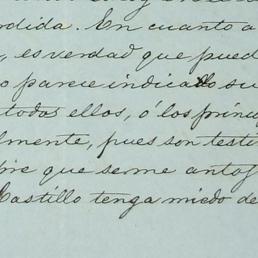 rdida. En cuanto a
, es verdad que pued
o parece indicarlo su
todos ellos, ó los princi
lmente, pues son testi
que se me antoj
Castillo tenga miedo de